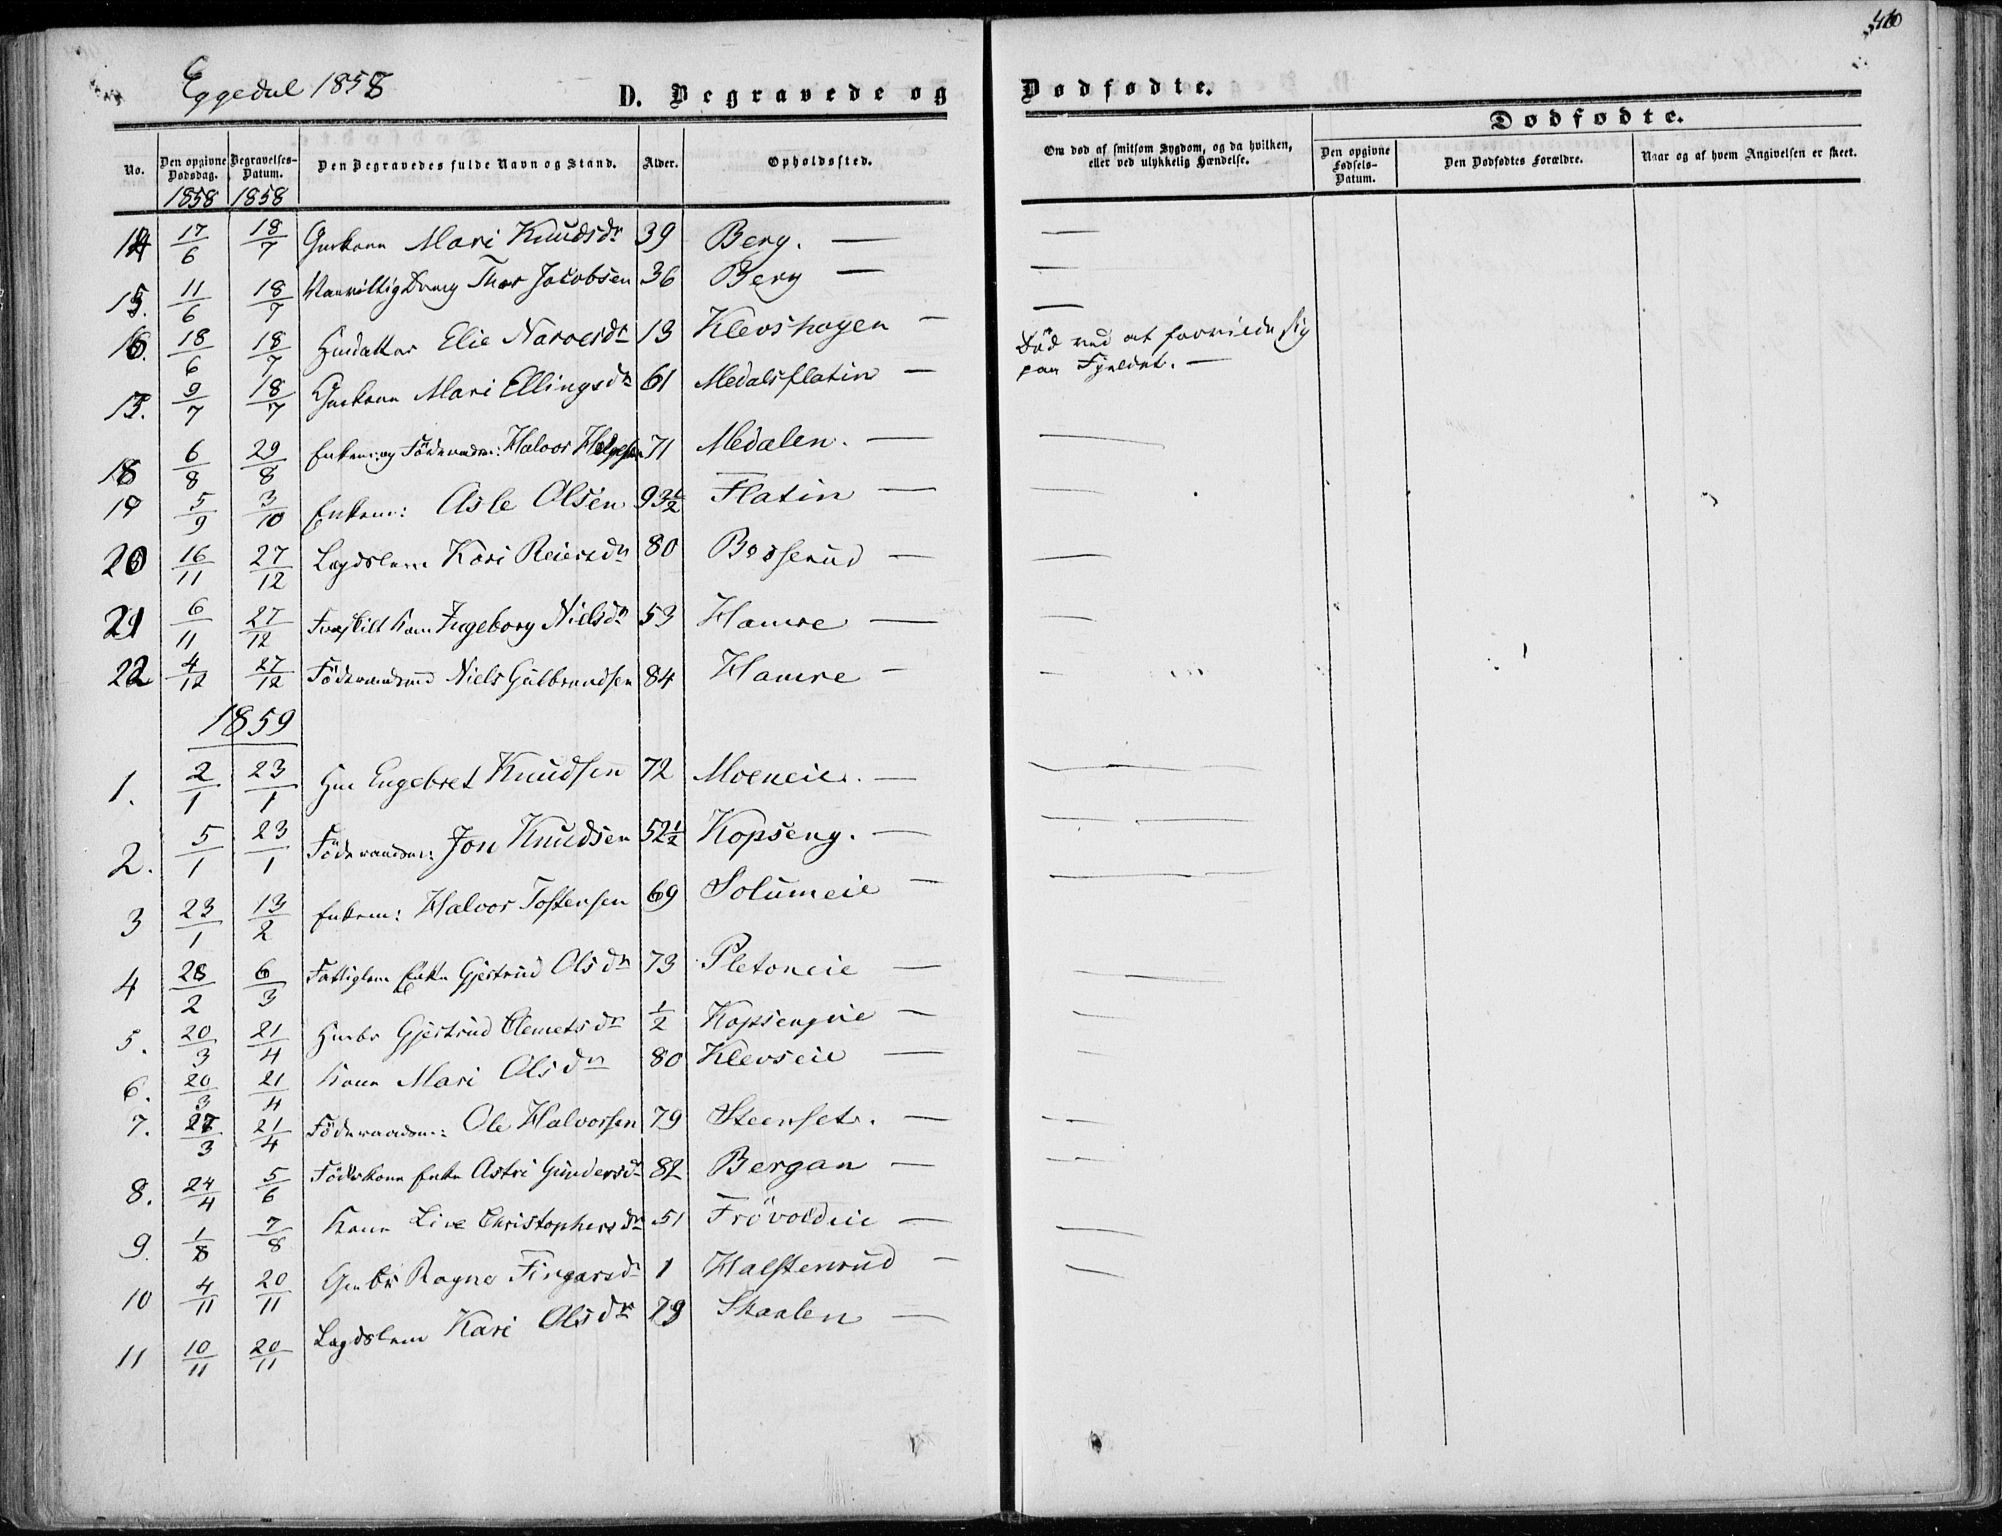 410
Eggedal 1858
D. Begravede og Dødfødte.
Dødfødte.
No.
Den opgivne Dødsdag.
Begravelses-Datum.
Den Begravedes fulde Navn og Stand.
Alder.
Opholdssted.
Om død af smitsom Sygdom, og da hvilken, eller ved ulykkelig Hændelse.
Den opgivne Fødsels-Datum.
Den Dødfødtes Forældre.
Naar og af hvem Angivelsen er skeet.
1858 1858
14 17/6 18/7 Gmkone Mari Knudsdr 39 Berg. —
15. 11/6 18/7 Vanvittig Dreng Thor Jacobsen 36 Berg —
16. 18/6 18/7 Hmdatter Elie Narvesdr 13 Klevshagen — Död ved at forvilde sig
paa Fjeldet. —
17. 9/7 18/7 Gmkone Mari Ellingsdr 61 Medalsflatin —
18 6/8 29/8 Enkem: og Föderaadm: Halvor Helgesen 71 Medalen. —
19 5/9 3/10 Enkem: Asle Olsen 93½ Flatin —
20 16/11 27/12 Lægdslem Kari Reiersdr 80 Bøsserud —
21 6/11 27/12 Fraskilt Kone Ingeborg Nielsdr 53 Hamre —
22 4/12 27/12 Föderaadsmd Niels Gulbrandsen 84 Hamre —
1859
1. 2/1 23/1 Hm Engebret Knudsen 72 Moeneie. —
2. 5/1 23/1 Föderaadsm: Jon Knudsen 52½ Kopseng. —
3 23/1 13/2 Enkem: Halvor Tostensen 69 Solumeie —
4 28/2 6/3 Fattiglem Enke Gjertrud Olsdr 73 Pletoneie —
5. 20/3 21/4 Hmbr Gjertrud Clemetsdr ½ Kopsengeie —
6. 20/3 21/4 Kone Mari Olsdr 80 Klevseie —
7. 27/3 21/4 Föderaadsm: Ole Halvorsen 79 Steenset. —
8. 24/4 5/6 Födskone Enke Astri Gundersdr 82 Bergan —
9. 1/8 7/8 Kone Live Christophersdr 51 Frövoldeie —
10 4/11 20/11 Gmbr Ragne Fingarsdr 1 Halstenrud —
11 10/11 20/11 Lægdslem Kari Olsdr 79 Skaalen —